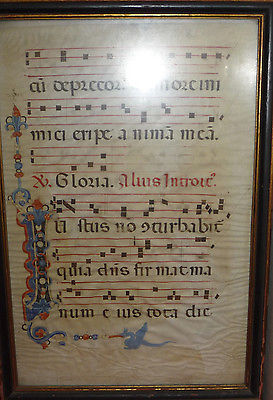 cū deprecor
mici eripe animam meā.
℣. Gloria. Alius Introit⁹.
Iustus nō ꝯturbabit̄
quia dn̄s firmat ma
num eius tota die